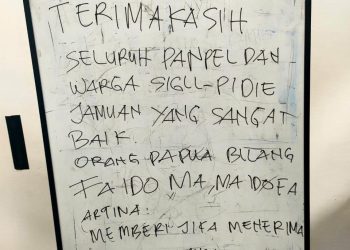 TERIMAKASIH
SELURUH PANPEL DAN
WARGA SIGLI-PIDIE
JAMUAN YANG SANGAT
BAIK.
ORANG PAPUA BILANG
FAIDO MA, MAIDOFA
ARTINA:
MEMBERI JIKA MENERIMA